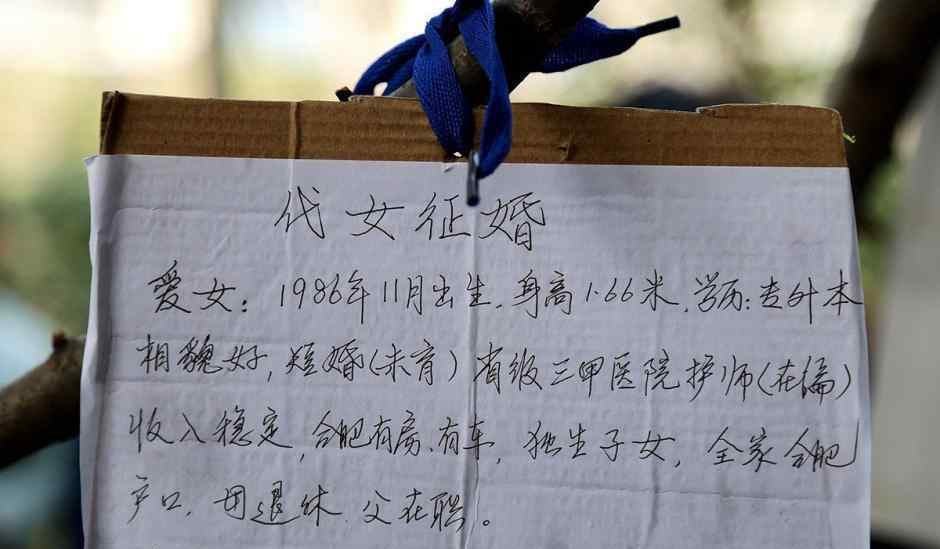 代女征婚
爱女：1986年11月出生.身高1.66米.学历：专升本
相魏好，短婚（未育）省级三甲医院护师（在偏）
收入稳定，合肥有房、有车，独生子女，全家合肥
户口．母退休．父在职。